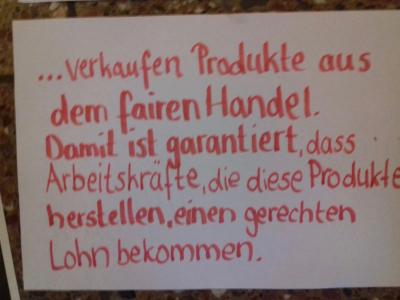 ...verkaufen Produkte aus
dem fairen Handel.
Damit ist garantiert, dass
Arbeitskräfte, die diese Produkte
herstellen, einen gerechten
Lohn bekommen.